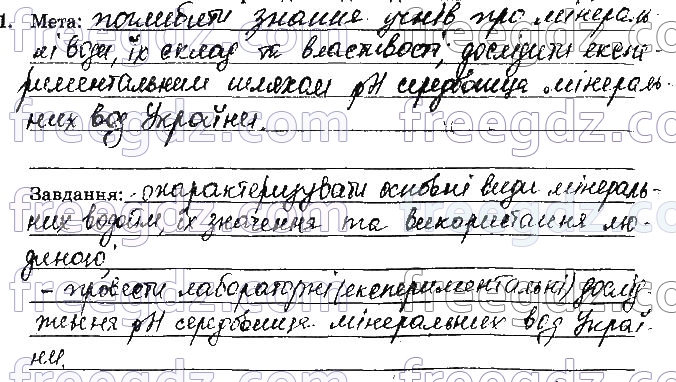 1. Мета: поглибити знання учнів про мінераль-
ні води, їх склад та властивості; дослідити експе-
риментальним шляхом pH середовища мінераль-
них вод України.
Завдання: - охарактеризувати основні види мінераль-
них водойм, їх значення та використання лю-
диною;
- провести лабораторні (експериментальні) дослід-
ження pH середовища мінеральних вод Украї-
ни.
freegdz.com